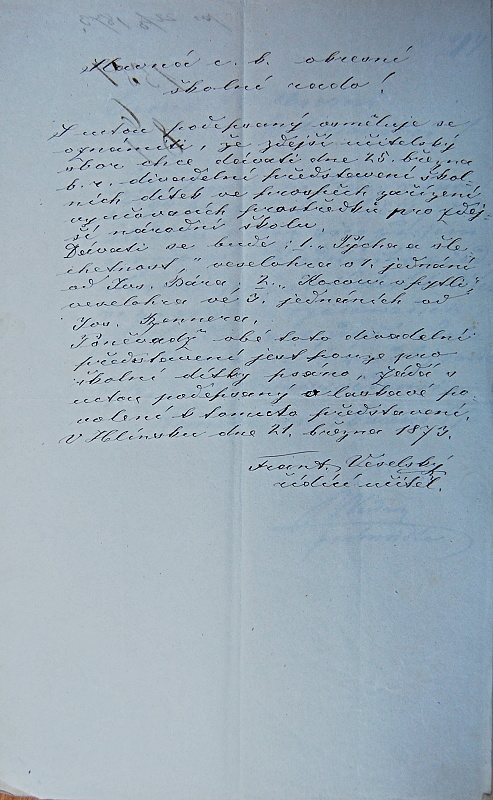 Slavná c. k. okresní
školní rado!
S úctou podepsaný osměluje se
oznámiti, že zdejší učitelský
sbor chce dávati dne 25. března
b. r. divadelní představení škol-
ních dítek ve prospěch zařízení
vyučovacích prostředků pro zdej-
ší národní školu.
Dávati se bude: 1. „Pýcha a šle-
chetnost,“ veselohra o 1. jednání
od Jos. Bára; 2. „Kocour v pytli“
veselohra ve 3. jednáních od
Jos.
Poněvadž obě toto divadelní
představení jest pouze pro
školní dítky psáno, žádá s
úctou podepsaný o laskavé po-
volení k tomuto představení.
V Hlinsku dne 21. března 1873.
Frant. Veselský
řídící učitel.